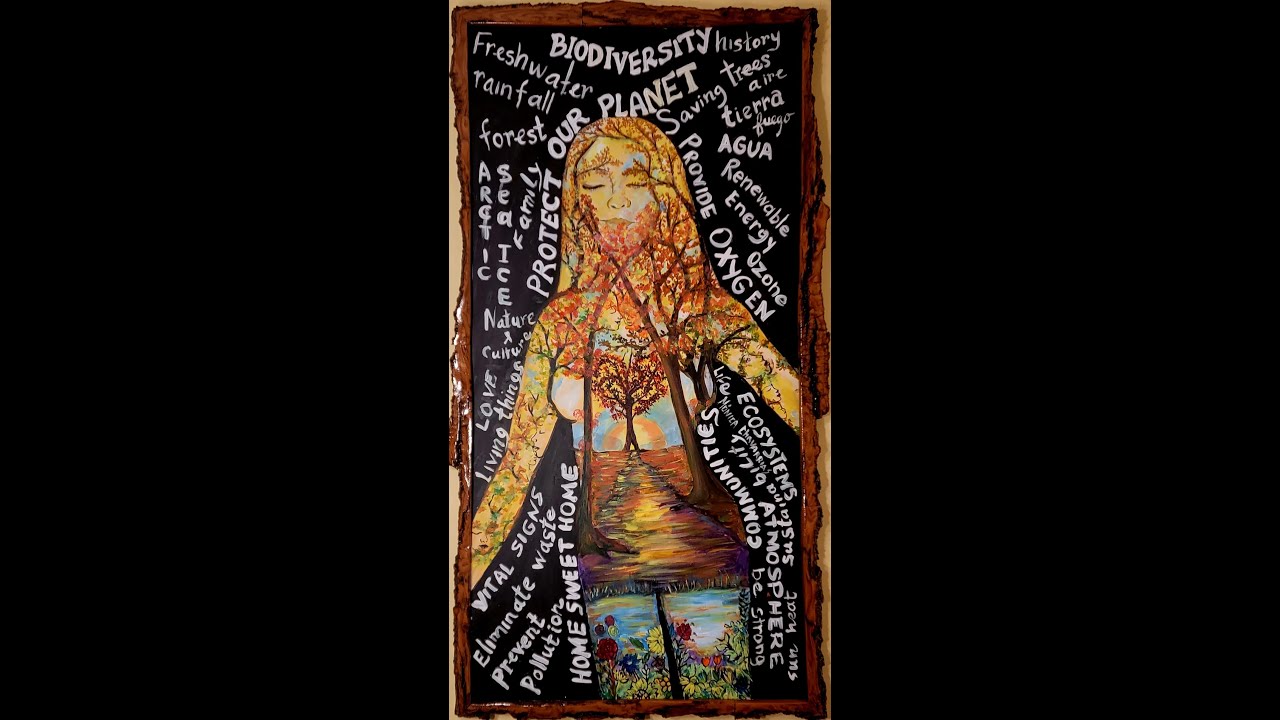 BIODIVERSITY
PROTECT OUR PLANET
Freshwater
rainfall
forest
ARCTIC
Sea ICE
Family
Nature
&
Culture
LOVE
Living things
VITAL SIGNS
Eliminate waste
Prevent
Pollution
HOME SWEET HOME
history
Saving trees
aire
tierra
fuego
AGUA
PROVIDE OXYGEN
Renewable
Energy
Ozone
Life
ECOSYSTEMS
sustainability
COMMUNITIES
ATMOSPHERE
be strong
sun heat